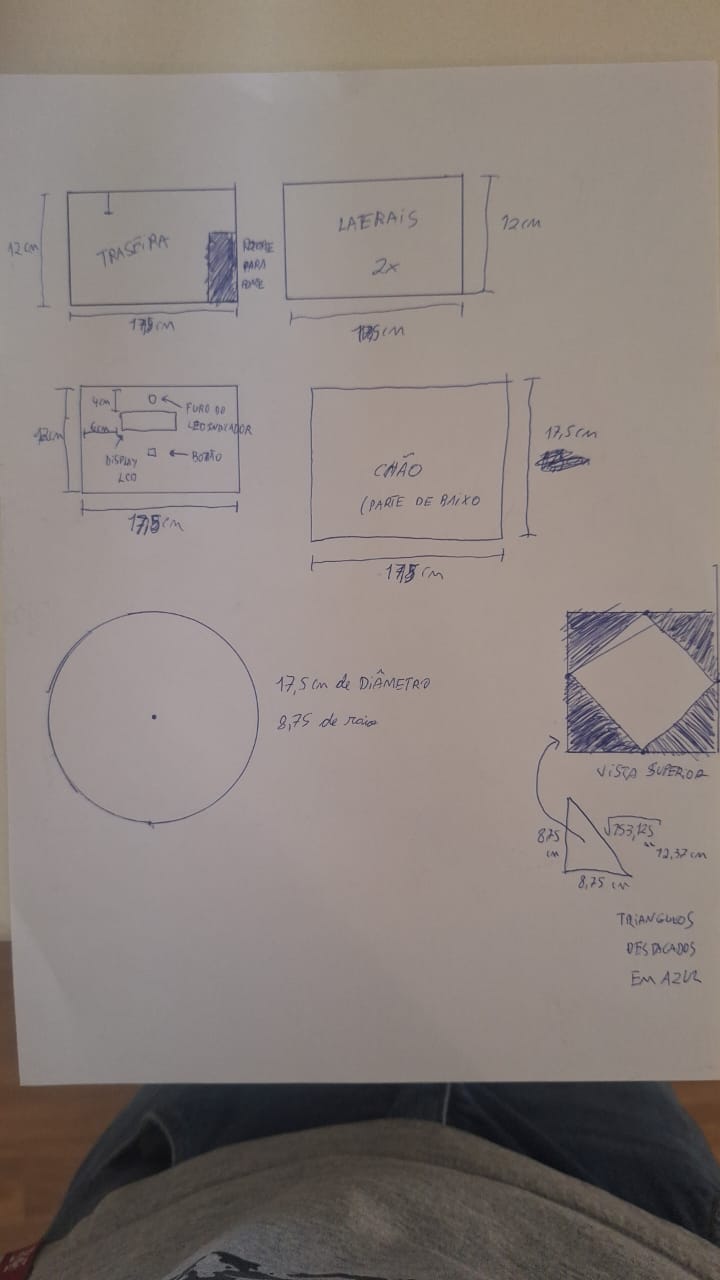 12cm
TRASEIRA
RECORTE
PARA
FONTE
17,5cm
LATERAIS
2x
12cm
17,5cm
12cm
4cm
6cm
FURO DO
LED INDICADOR
DISPLAY
LCD
BOTÃO
17,5cm
CHÃO
(PARTE DE BAIXO
17,5cm
17,5cm
17,5cm de DIÂMETRO
8,75 de raio
VISTA SUPERIOR
8,75
cm
√153,125
12,37 cm
8,75 cm
TRIANGULOS
DESTACADOS
EM AZUL